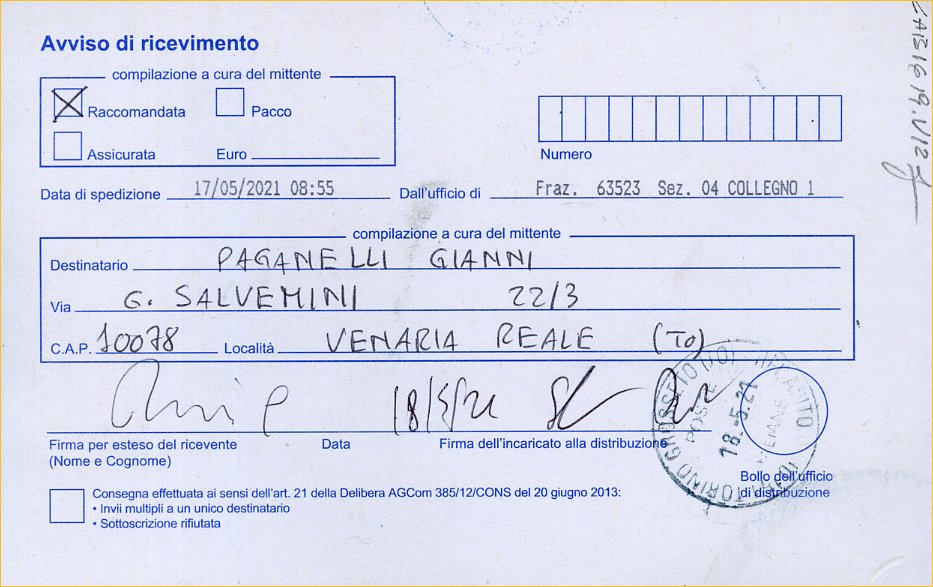 Avviso di ricevimento
compilazione a cura del mittente
Raccomandata Pacco
Assicurata Euro
Numero
Data di spedizione 17/05/2021 08:55 Dall'ufficio di Fraz. 63523 Sez. 04 COLLEGNO 1
compilazione a cura del mittente
Destinatario PAGANELLI GIANNI
Via G. SALVEMINI 22/3
C.A.P. 10078 Località VENARIA REALE (TO)
18/5/21
Firma per esteso del ricevente Data Firma dell'incaricato alla distribuzione
(Nome e Cognome)
18.-5.21
Bollo dell'ufficio
di distribuzione
Consegna effettuata ai sensi dell'art. 21 della Delibera AGCom 385/12/CONS del 20 giugno 2013:
• Invii multipli a un unico destinatario
• Sottoscrizione rifiutata